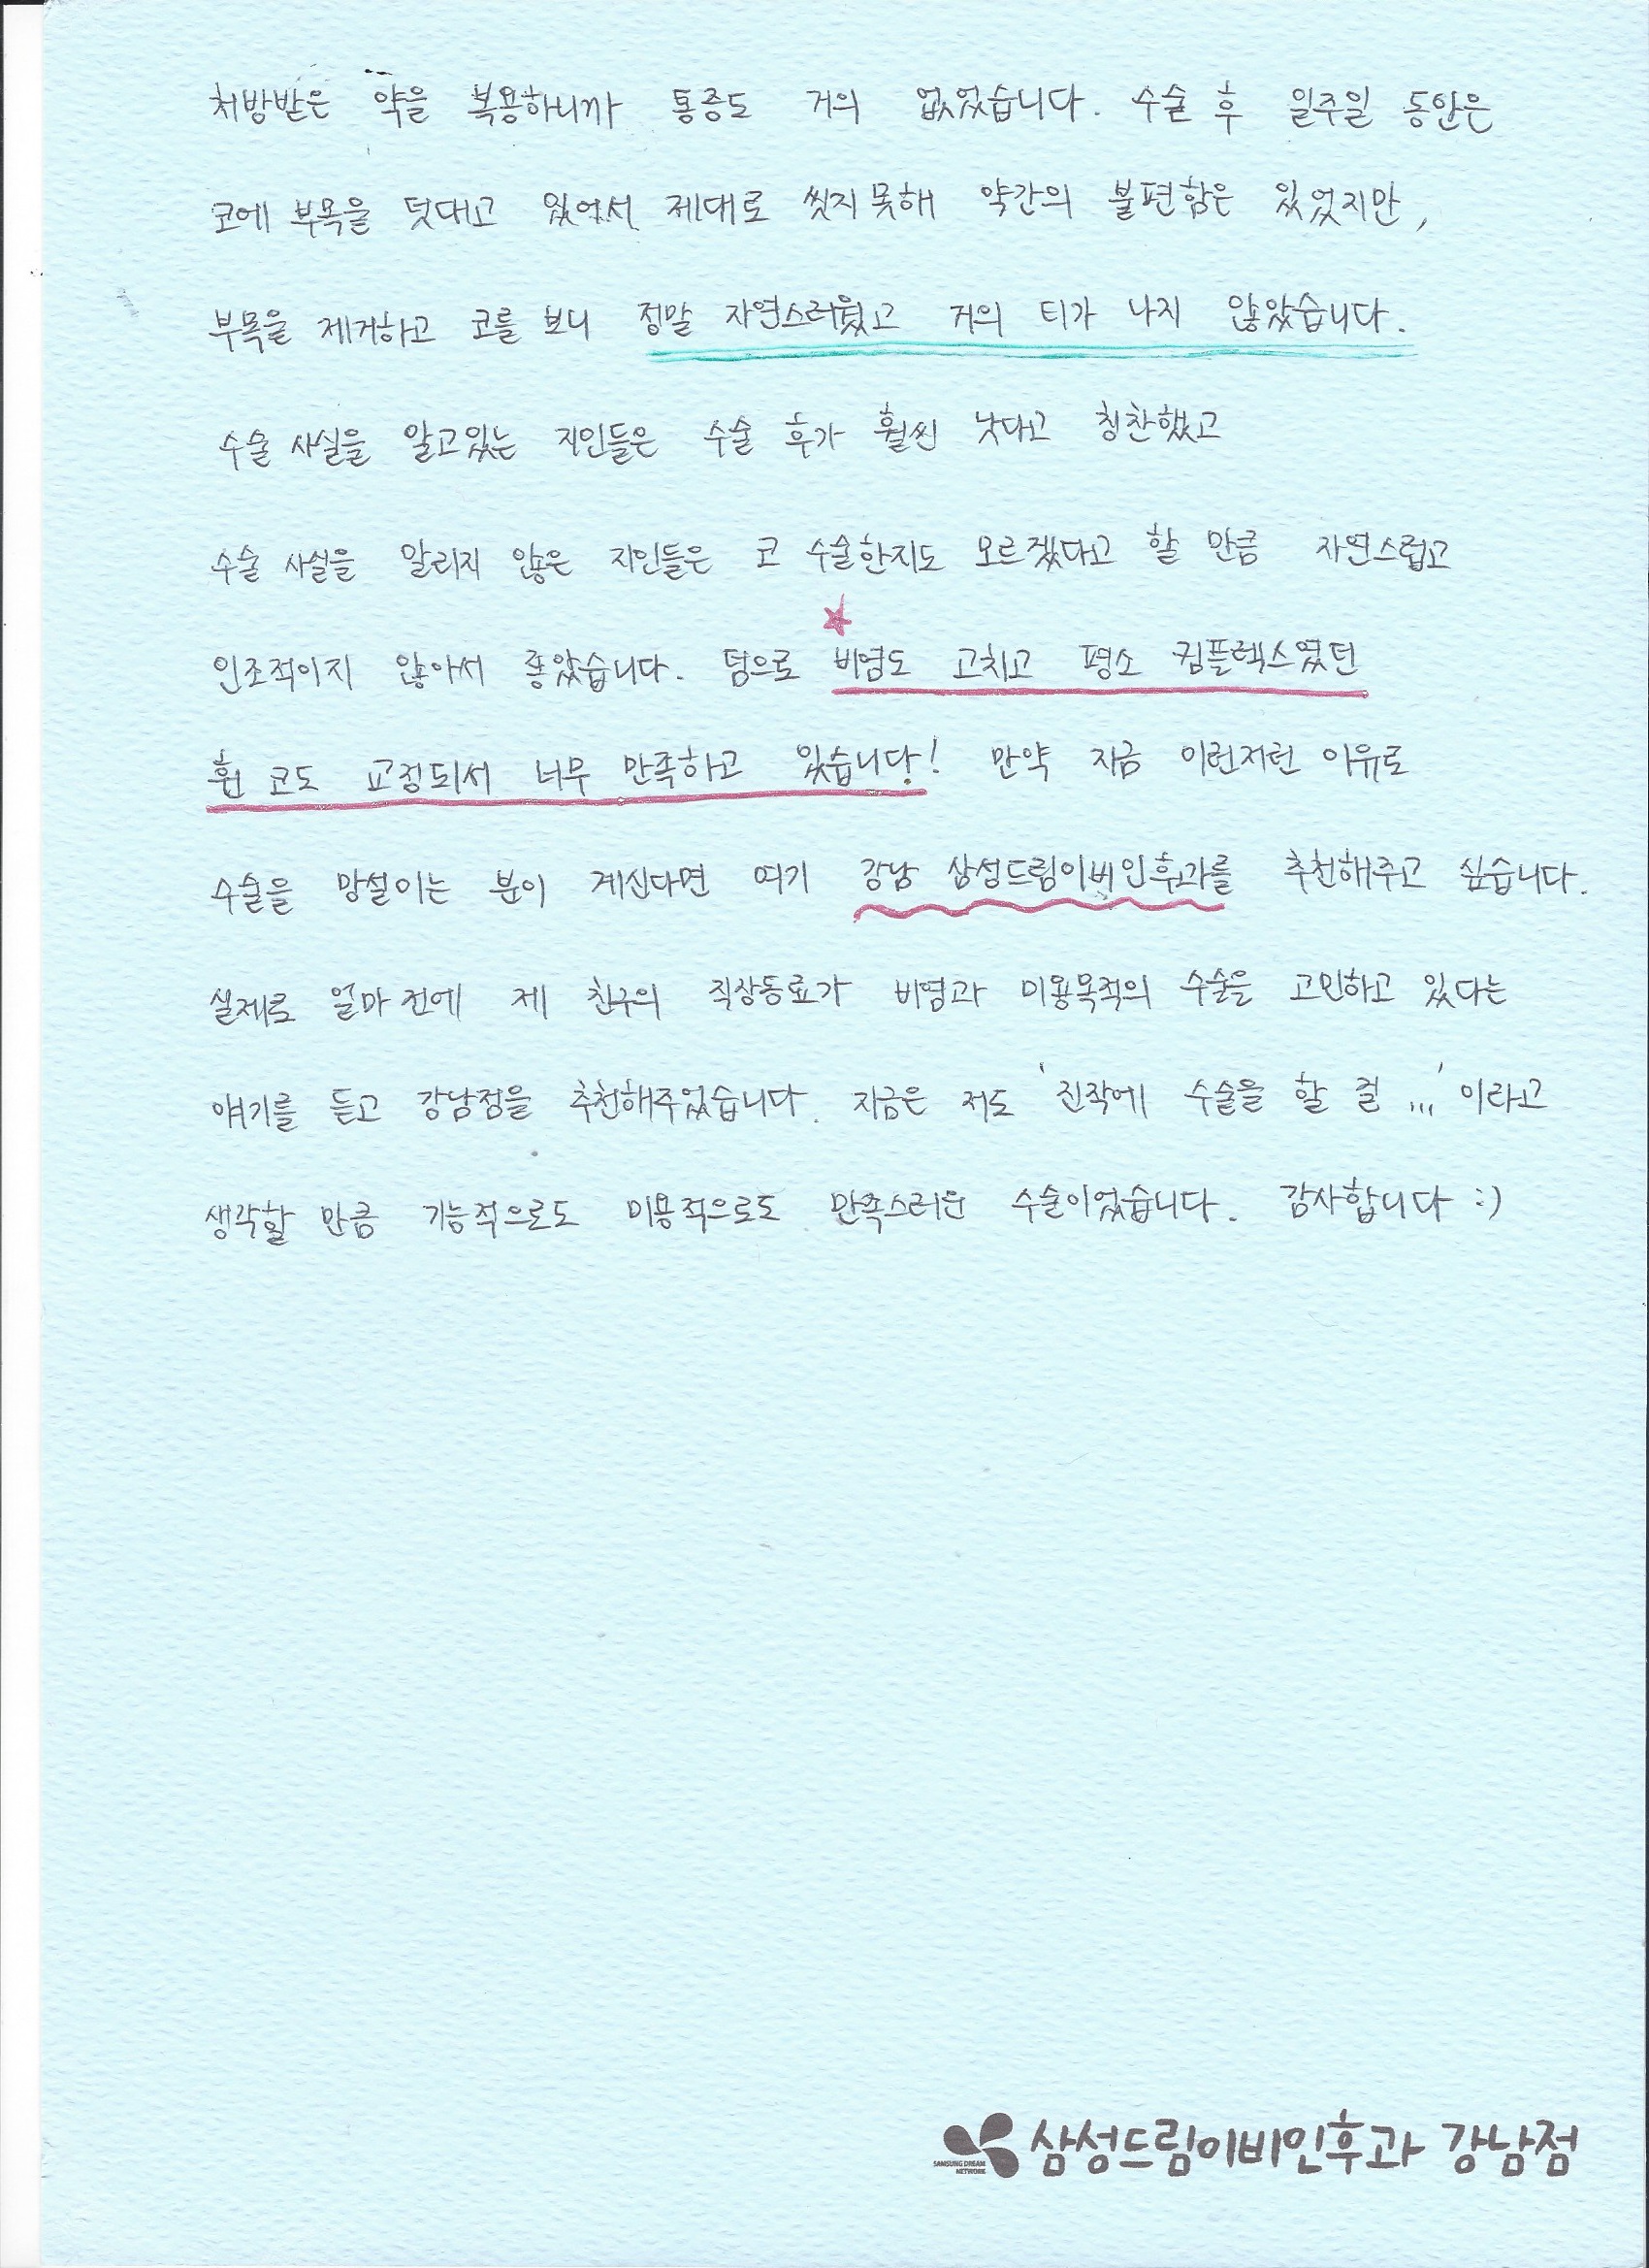 처방받은 약을 복용하니까 통증도 거의 없었습니다. 수술 후 일주일 동안은
코에 부목을 덧대고 있어서 제대로 씻지 못해 약간의 불편함은 있었지만,
부목을 제거하고 코를 보니 정말 자연스러웠고 거의 티가 나지 않았습니다.
수술 사실을 알고있는 지인들은 수술 후가 훨씬 낫다고 칭찬했고
수술 사실을 알리지 않은 지인들은 코 수술한지도 모르겠다고 할 만큼 자연스럽고
인조적이지 않아서 좋았습니다. 덤으로 비염도 고치고 평소 컴플렉스였던
휜 코도 교정되서 너무 만족하고 있습니다! 만약 지금 이런저런 이유로
수술을 망설이는 분이 계신다면 여기 강남 삼성드림이비인후과를 추천해주고 싶습니다.
실제로 얼마 전에 제 친구의 직장동료가 비염과 미용목적의 수술을 고민하고 있다는
얘기를 듣고 강남점을 추천해주었습니다. 지금은 저도 '진작에 수술을 할 걸...'이라고
생각할 만큼 기능적으로도 미용적으로도 만족스러운 수술이었습니다. 감사합니다 :)
삼성드림이비인후과 강남점
SAMSUNG DREAM
NETWORK